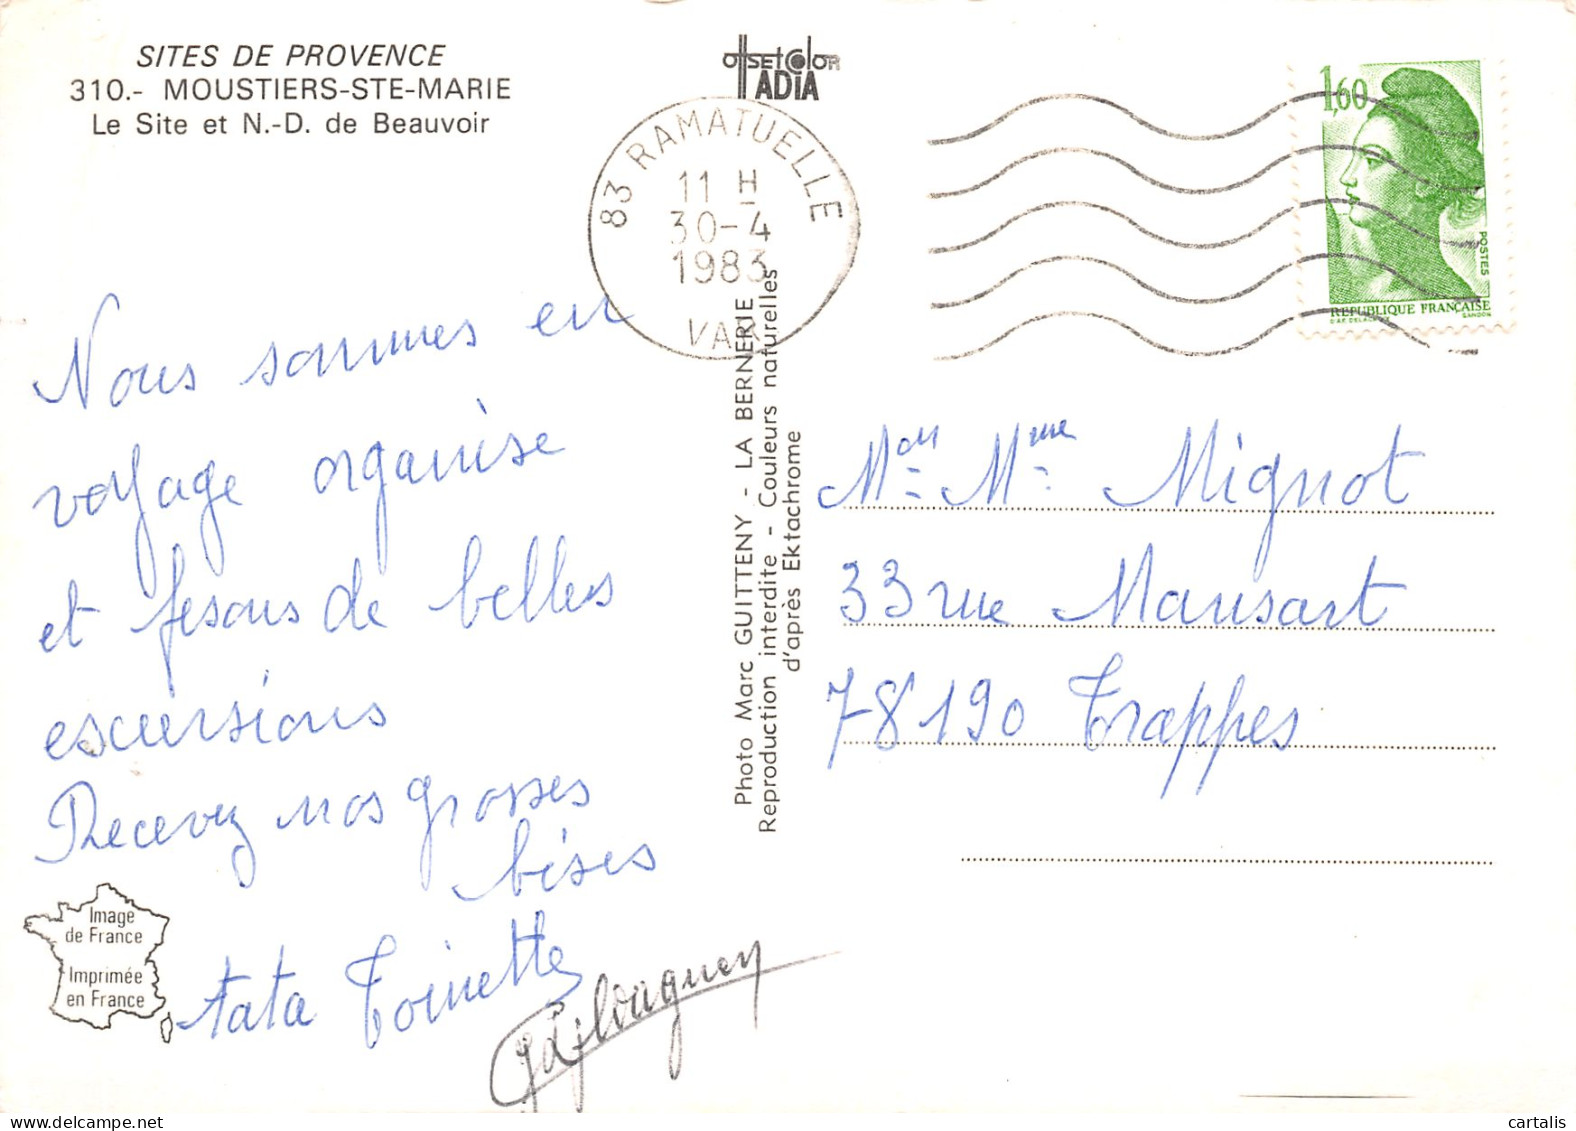 SITES DE PROVENCE
310.- MOUSTIERS-STE-MARIE
Le Site et N.-D. de Beauvoir
offset color
TADIA
83 RAMATUELLE
11 H
30-4
1983
VAR
1,60
POSTES
REPUBLIQUE FRANÇAISE
D'AP. DELACROIX GANDON
Nous sommes en
voyage organise
et fesons de belles
excursions
Recevez nos grosses
bises
tata Toinette
Photo Marc GUITTENY - LA BERNERIE
Reproduction interdite - Couleurs naturelles
d'après Ektachrome
Mr Mme Mignot
33 rue Mansart
78190 Trappes
Image
de France
Imprimée
en France
cartalis